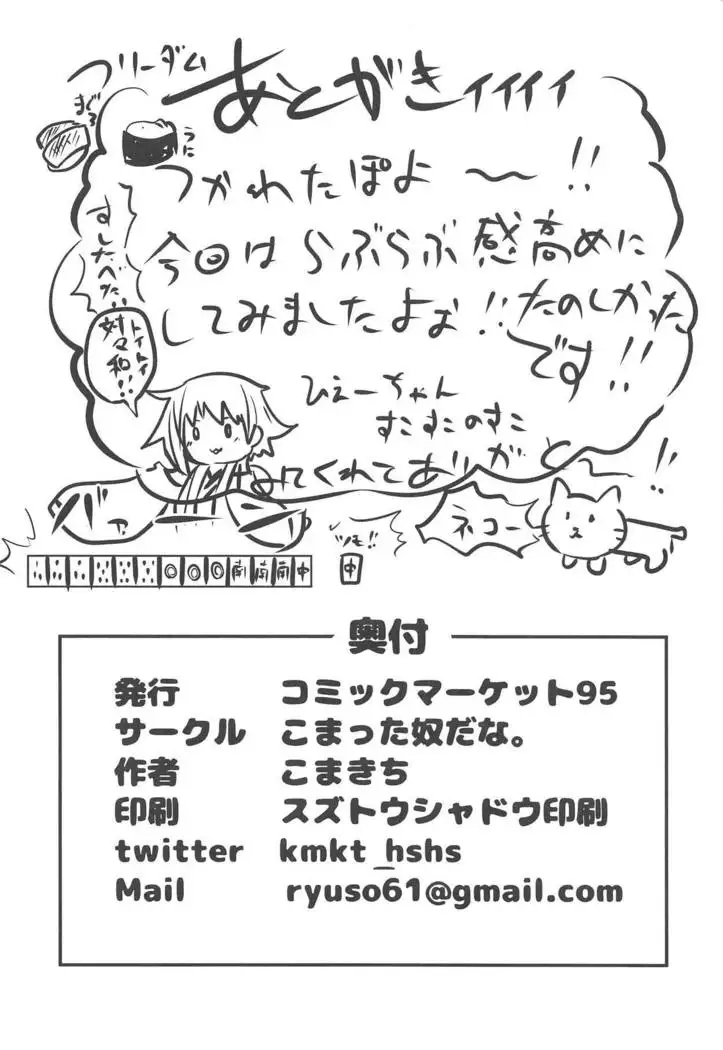 フリーダム
あとがきィィィィ
まぐろ
うに
つかれたぽよ〜!!
今回はらぶらぶ感高めに
してみましたよぉ!!たのしかった
です!!
すしたべた…
トイトイ
対々和!!
ひえーちゃん
すこすこのすこ
みてくれてありがと〜!!
バァ
ツモ!!
ネコー
南南南中
中
奥付
発行 コミックマーケット95
サークル こまった奴だな。
作者 こまきち
印刷 スズトウシャドウ印刷
twitter kmkt_hshs
Mail ryuso61@gmail.com